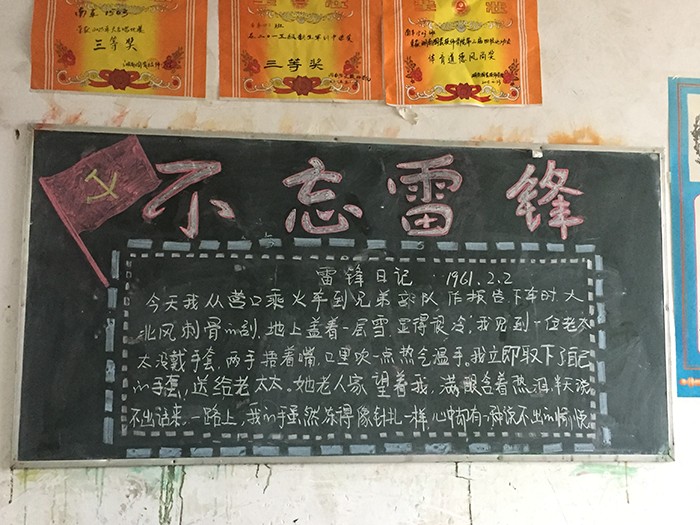 三等奖
三等奖
体育道德风尚奖
不忘雷锋
雷锋日记 1961.2.2
今天我从营口乘火车到兄弟部队作报告下车时大
北风刺骨的刮,地上盖着一层雪,显得很冷,我见到一位老太
太没戴手套,两手捂着嘴,口里吹一点热气温手。我立即取下了自己
的手套,送给老太太。她老人家望着我,满眼含着热泪,半天说
不出话来。一路上,我的手虽然冻得像针扎一样,心中却有一种说不出的愉快